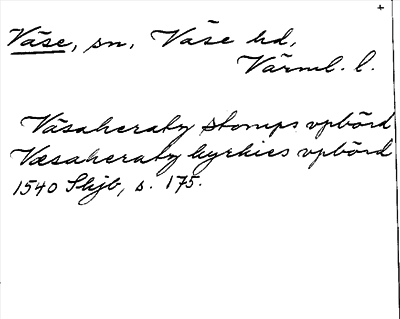 Väse, sn, Väse hd,
Värml. l.
Väsaheratz stomps vpbörd
Væsaheratz kyrkies vpbörd
1540 Skjb, s. 175.